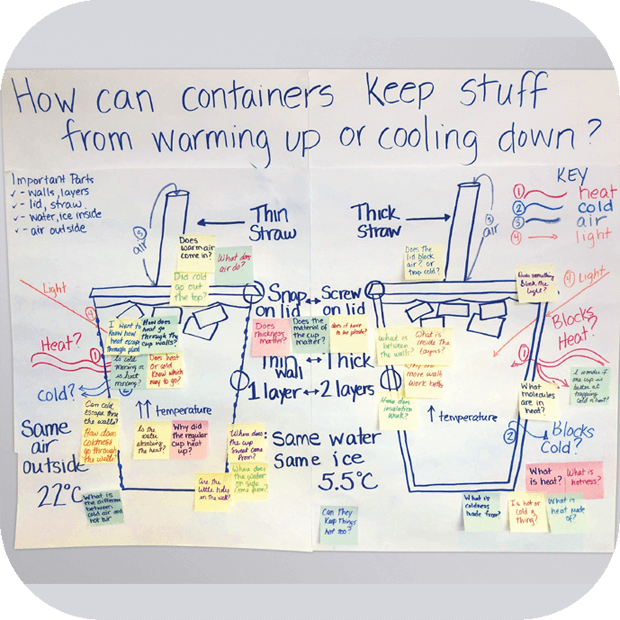 How can containers keep stuff
from warming up or cooling down?
Important Parts
✓ - walls, layers
✓ - lid, straw
✓ - water, ice inside
✓ - air outside
KEY
1 heat
2 cold
3 air
4 light
3
air
Thin
Straw
Thick
Straw
3
air
Does
warm air
come in?
What does
air do?
Did cold
go out
the top?
Does The
lid block
air? or
trap cold?
Does something
block the
light?
Light
4
4 Light
Snap ↔ Screw
on lid on lid
I want to
know how
heat escap
through
How does
heat go
through the
cup walls?
Is cole
moving or
is heat
moving?
Does heat
or cold
know which
way to go?
Does
thickness
matter?
Does the
material of
the cup
matter?
What
is between
the walls?
What is
inside the
layers?
Heat?
1
Blocks
Heat?
1
Thin ↔ Thick
wall
1 layer ↔ 2 layers
more walls
work
How does
insulation
work?
I wonder if
the cup is
better at
trapping
cold or heat?
What
molecules
are in
heat?
Cold?
2
Can cole
escape thru
the walls?
How does
coldness
go through
the walls?
↑↑ temperature
↑ temperature
Is the
water
absorbing
the heat?
Why did
the regular
cup heat
up?
Where does
the cup
sweat come
from?
Where does
the water
on side
come from?
Are the
little holes
in the wall?
2
Blocks
Cold?
Same
air
outside
22°C
Same water
Same ice
5.5°C
What is
the difference
between
cold air and
hot air
Can They
keep Things
hot too?
What is heat?
What is
hotness?
What is
coldness
made from?
Is hot or
cold a
thing?
What is
heat made
of?